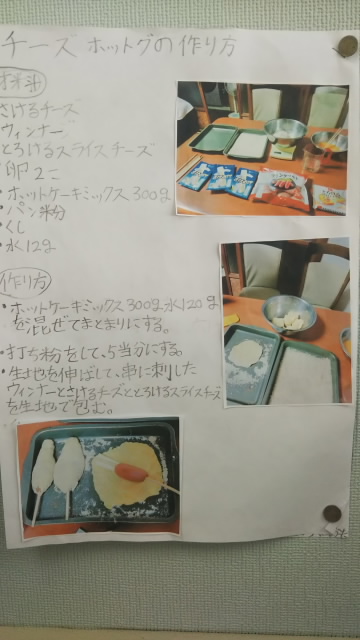 チーズ ホットグの作り方
材料
さけるチーズ
ウィンナー
とろけるスライスチーズ
卵 2コ
・ホットケーキミックス300g
・パン粉
・くし
・水12g
作り方
・ホットケーキミックス300g水120g
を混ぜてまとまりにする。
・打ち粉をして、5当分にする。
・生地を伸ばして、串に刺した
ウィンナーとさけるチーズととろけるスライスチーズ
を生地で包む。